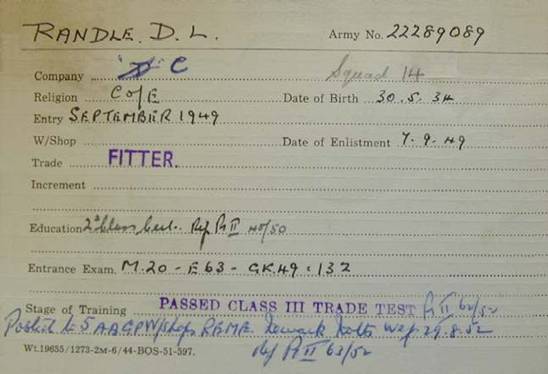 RANDLE. D. L. Army No. 22289089
Company "D" C Squad 14
Religion C of E Date of Birth 30.5.34
Entry SEPTEMBER 1949
W/Shop Date of Enlistment 7-9-49
Trade FITTER.
Increment
Education 2nd Class Cert. Ref Pt II 40/50
Entrance Exam. M.20 - E 63 - GK.49 = 132
Stage of Training PASSED CLASS III TRADE TEST Pt II 62/52
Posted to 5 AAGPW/shop R.E.M.E. Newark Notts Wef 29.8.52
Ref Pt II 63/52
Wt.19655/1273-2M-6/44-BOS-51-597.